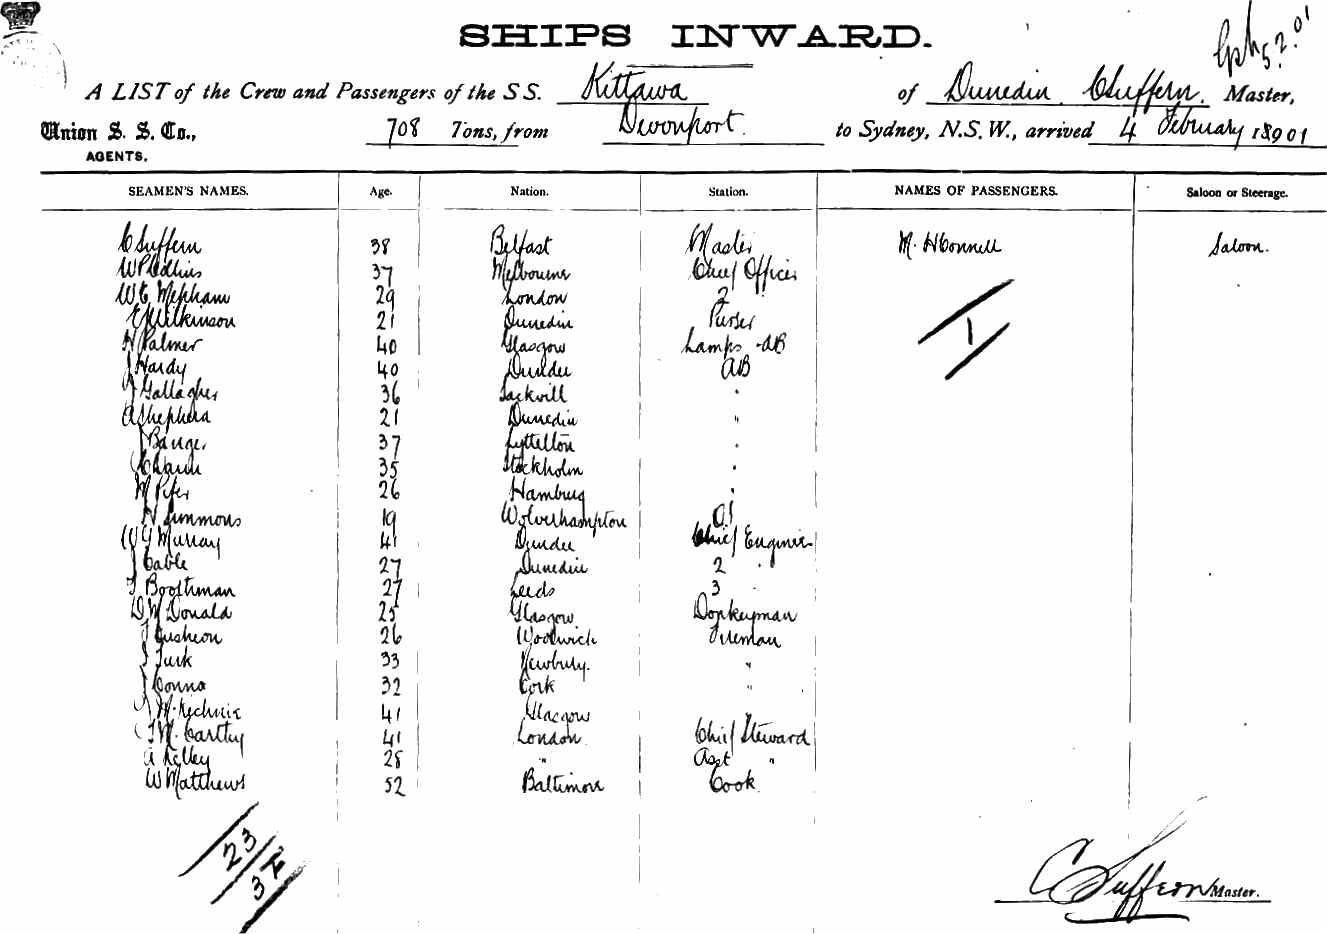 SHIPS INWARD.
5.2.01
A LIST of the Crew and Passengers of the S S. Kittawa of Dunedin C Suffern. Master,
Union S. S. Co., 708 Tons, from Devonport. to Sydney, N.S.W., arrived 4 February 18901
AGENTS.
SEAMEN'S NAMES. Age. Nation. Station. NAMES OF PASSENGERS. Saloon or Steerage.
C Suffern 38 Belfast Master M. Saloon.
W P Collins 37 Melbourne Chief Officer
W E Mepham 29 London 2 "
E Wilkinson 21 Dunedin Purser
H Palmer 40 Glasgow Lamps - AB
J Hardy 40 Dundee AB
J Gallagher 36 Sackvill "
A Shepherd 21 Dunedin "
J 37 Lyttelton "
C 35 Stockholm "
M 26 Hamburg "
H Simmons 19 Wolverhampton
W G Murray 41 Dundee Chief Engineer
J Cable 27 Dunedin 2 "
T Boothman 27 Leeds 3 "
D McDonald 25 Glasgow Donkeyman
J 26 Woolwich Fireman
J Turk 33 Newbury. "
J 32 Cork "
J McKechnie 41 Glasgow
J McCarthy 41 London Chief Steward
A Kelley 28 " Asst "
W Matthews 52 Baltimore Cook
1
23
C Suffern Master.